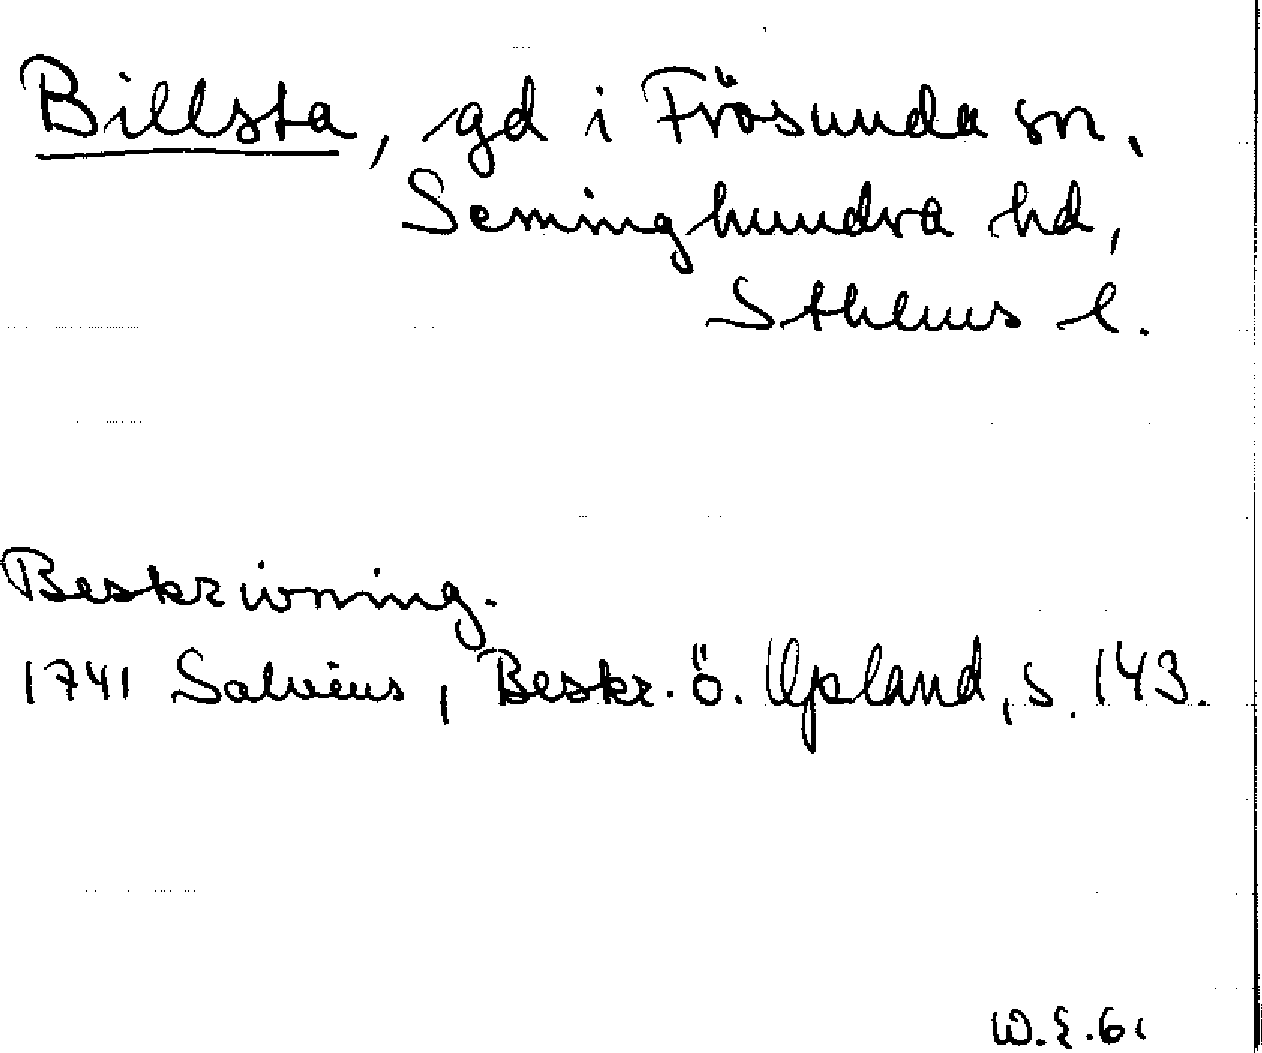 Billsta, gd i Frösunda sn,
Seminghundra hd,
Sthlms l.
Beskrivning.
1741 Salvius, Beskr. ö. Upland, s. 143.
W.E.61